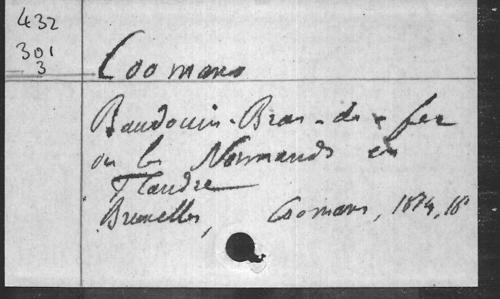 432
301
3
Coomans
Baudouin-Bras-de-fer
ou les Normands en
Flandre
Bruxelles, Coomans, 1874, 18°